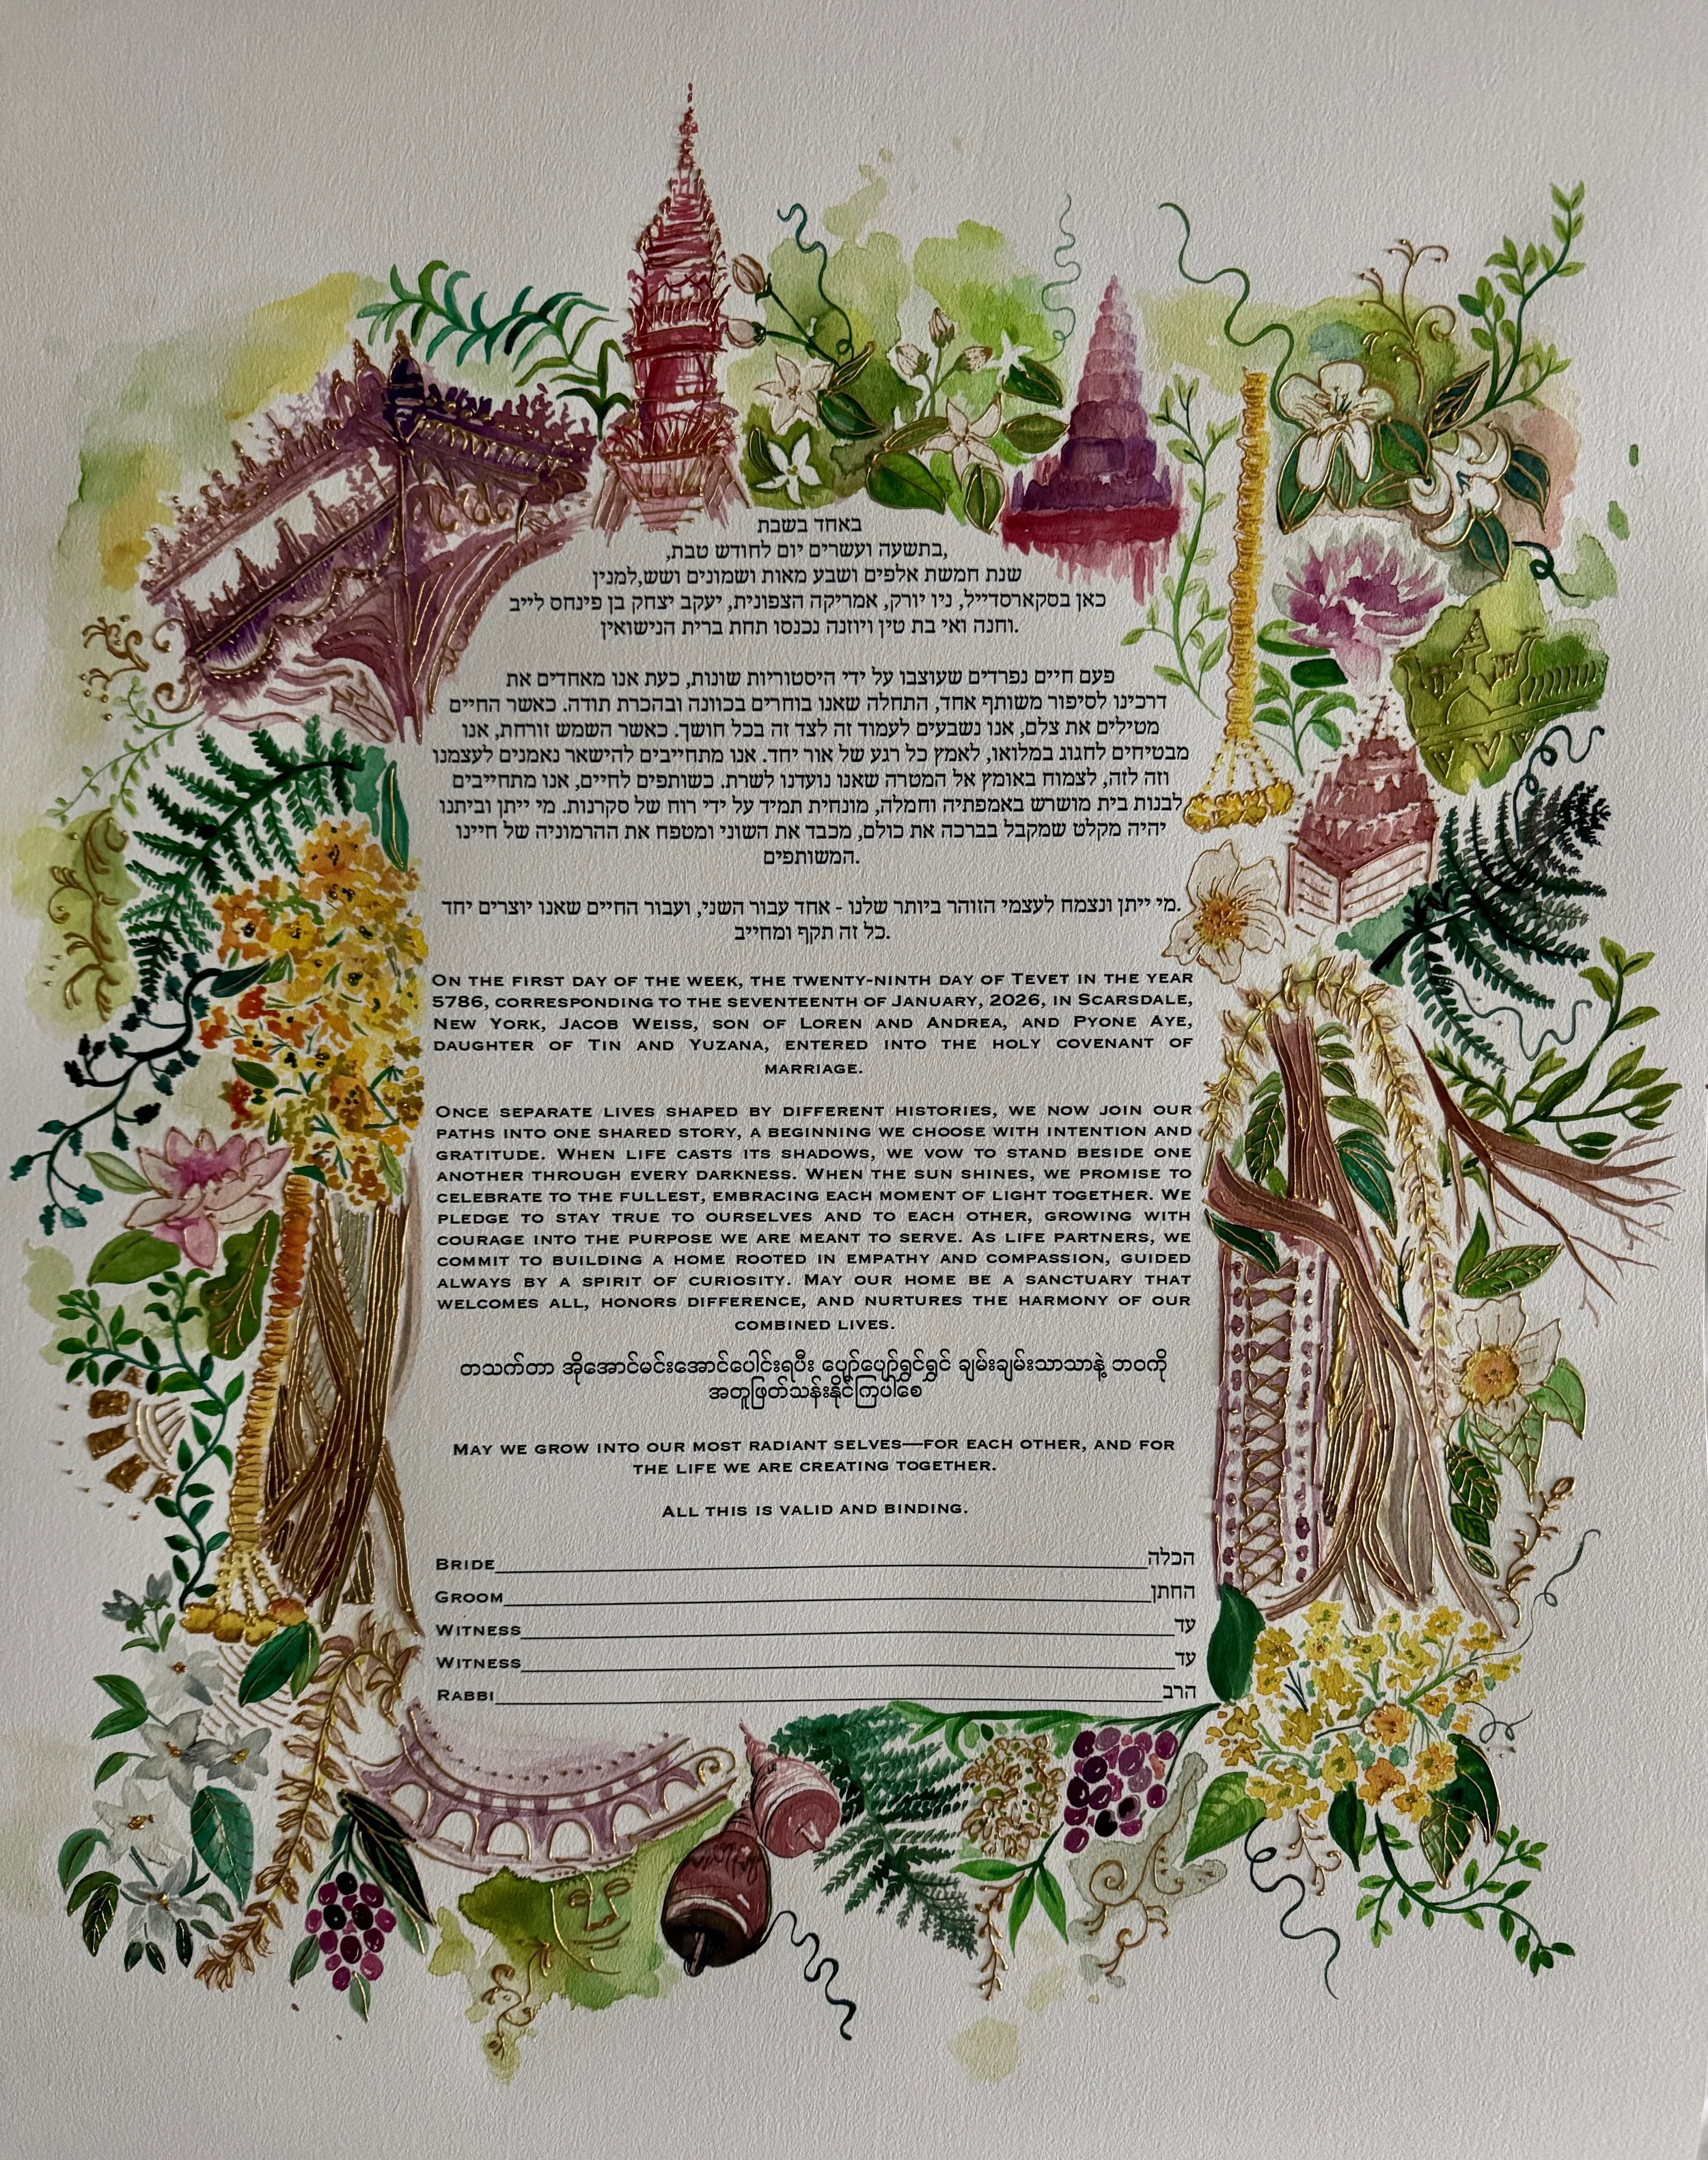 באחד בשבת
בתשעה ועשרים יום לחודש טבת,
שנת חמשת אלפים ושבע מאות ושמונים ושש,למנין
כאן בסקארסדייל, ניו יורק, אמריקה הצפונית, יעקב יצחק בן פינחס לייב
וחנה ואי בת טין ויוזנה נכנסו תחת ברית הנישואין.
פעם חיים נפרדים שעוצבו על ידי היסטוריות שונות, כעת אנו מאחדים את
דרכינו לסיפור משותף אחד, התחלה שאנו בוחרים בכוונה ובהכרת תודה. כאשר החיים
מטילים את צלם, אנו נשבעים לעמוד זה לצד זה בכל חושך. כאשר השמש זורחת, אנו
מבטיחים לחגוג במלואו, לאמץ כל רגע של אור יחד. אנו מתחייבים להישאר נאמנים לעצמנו
וזה לזה, לצמוח באומץ אל המטרה שאנו נועדנו לשרת. כשותפים לחיים, אנו מתחייבים
לבנות בית מושרש באמפתיה וחמלה, מונחית תמיד על ידי רוח של סקרנות. מי ייתן וביתנו
יהיה מקלט שמקבל בברכה את כולם, מכבד את השוני ומטפח את ההרמוניה של חיינו
המשותפים.
מי ייתן ונצמח לעצמי הזוהר ביותר שלנו - אחד עבור השני, ועבור החיים שאנו יוצרים יחד.
כל זה תקף ומחייב.
On the first day of the week, the twenty-ninth day of Tevet in the year
5786, corresponding to the seventeenth of January, 2026, in Scarsdale,
New York, Jacob Weiss, son of Loren and Andrea, and Pyone Aye,
daughter of Tin and Yuzana, entered into the holy covenant of
marriage.
Once separate lives shaped by different histories, we now join our
paths into one shared story, a beginning we choose with intention and
gratitude. When life casts its shadows, we vow to stand beside one
another through every darkness. When the sun shines, we promise to
celebrate to the fullest, embracing each moment of light together. We
pledge to stay true to ourselves and to each other, growing with
courage into the purpose we are meant to serve. As life partners, we
commit to building a home rooted in empathy and compassion, guided
always by a spirit of curiosity. May our home be a sanctuary that
welcomes all, honors difference, and nurtures the harmony of our
combined lives.
တသက်တာ အိုအောင်မင်းအောင်ပေါင်းရပြီး ပျော်ပျော်ရွှင်ရွှင် ချမ်းချမ်းသာသာနဲ့ ဘဝကို
အတူဖြတ်သန်းနိုင်ကြပါစေ
May we grow into our most radiant selves—for each other, and for
the life we are creating together.
All this is valid and binding.
Bride הכלה
Groom החתן
Witness עד
Witness עד
Rabbi הרב